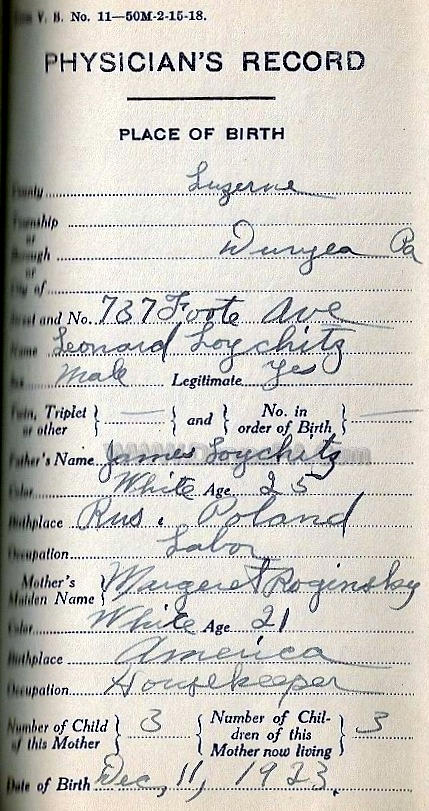 V. B. No. 11—50M-2-15-18.
PHYSICIAN'S RECORD
PLACE OF BIRTH
County Luzerne
Township
or
Borough Duryea Pa
or
City of
Street and No. 737 Foote Ave
Name Leonard Loychitz
Sex Male Legitimate Yes
Twin, Triplet or other } — { and { No. in order of Birth } —
Father's Name James Loychitz
Color White Age 25
Birthplace Rus. Poland
Occupation Labor
Mother's Maiden Name } Margaret Roginsky
Color White Age 21
Birthplace America
Occupation Housekeeper
Number of Child of this Mother } 3 { Number of Children of this Mother now living } 3
Date of Birth Dec, 11, 1923.